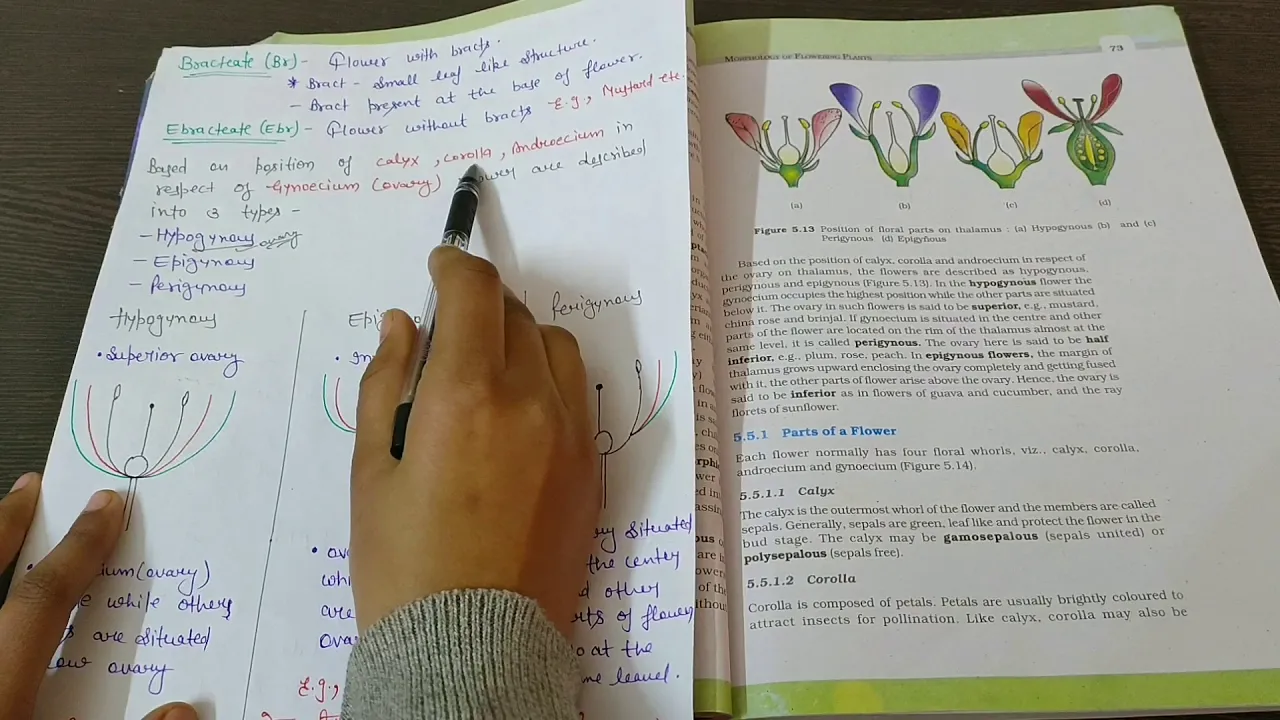 Bracteate (Br) - Flower with bracts.
* Bract - Small leaf like structure.
- Bract present at the base of flower.
Ebracteate (Ebr) - Flower without bracts - E.g., Mustard etc.
Based on position of calyx, corolla, Androecium in
respect of Gynoecium (ovary) are described
into 3 types -
- Hypogynous ovary
- Epigynous
- Perigynous
Hypogynous
• Superior ovary
(ovary)
while others
are situated
ovary
Perigynous
situated
the center
other
of flower
at the
leavel.
E.g.,
MORPHOLOGY OF FLOWERING PLANTS
73
(a) (b) (c) (d)
Figure 5.13 Position of floral parts on thalamus : (a) Hypogynous (b) and (c)
Perigynous (d) Epigynous
Based on the position of calyx, corolla and androecium in respect of
the ovary on thalamus, the flowers are described as hypogynous,
perigynous and epigynous (Figure 5.13). In the hypogynous flower the
gynoecium occupies the highest position while the other parts are situated
below it. The ovary in such flowers is said to be superior, e.g., mustard,
china rose and brinjal. If gynoecium is situated in the centre and other
parts of the flower are located on the rim of the thalamus almost at the
same level, it is called perigynous. The ovary here is said to be half
inferior, e.g., plum, rose, peach. In epigynous flowers, the margin of
thalamus grows upward enclosing the ovary completely and getting fused
with it, the other parts of flower arise above the ovary. Hence, the ovary is
said to be inferior as in flowers of guava and cucumber, and the ray
florets of sunflower.
5.5.1 Parts of a Flower
Each flower normally has four floral whorls, viz., calyx, corolla,
androecium and gynoecium (Figure 5.14).
5.5.1.1 Calyx
The calyx is the outermost whorl of the flower and the members are called
sepals. Generally, sepals are green, leaf like and protect the flower in the
bud stage. The calyx may be gamosepalous (sepals united) or
polysepalous (sepals free).
5.5.1.2 Corolla
Corolla is composed of petals. Petals are usually brightly coloured to
attract insects for pollination. Like calyx, corolla may also be